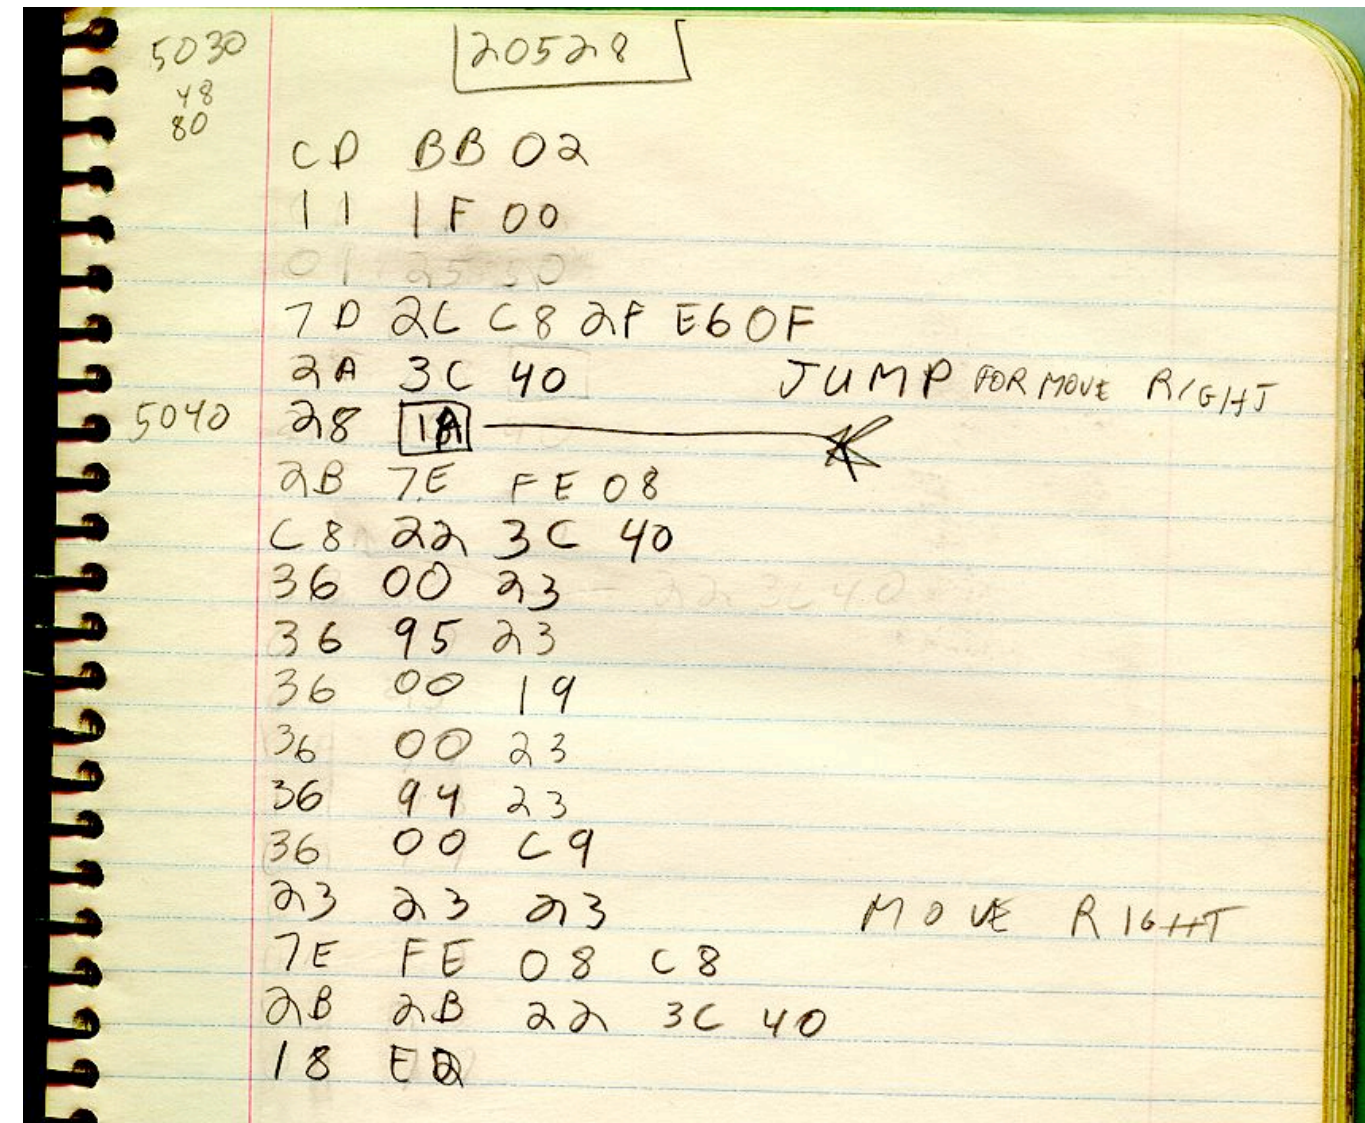 5030 20528
48
80
CD BB 02
11 1F 00
01 25 50
7D 2C C8 2F E6 0F
2A 3C 40 JUMP FOR MOVE RIGHT
5040 28 1A
2B 7E FE 08
C8 22 3C 40
36 00 23 — 22 3C 40
36 95 23
36 00 19
36 00 23
36 94 23
36 00 C9
23 23 23 MOVE RIGHT
7E FE 08 C8
2B 2B 22 3C 40
18